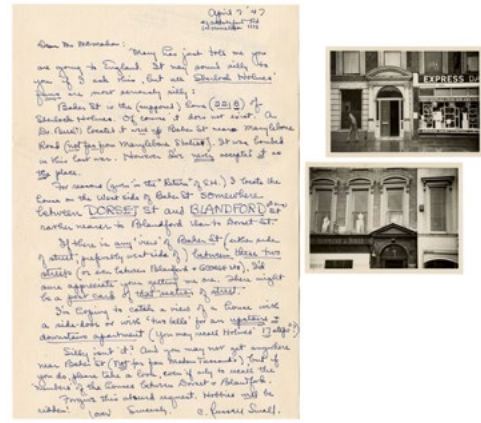 April 7 '47
Dear Mr. McMahon:
Mary has just told me you
are going to England. It may sound silly to
you if I ask this, but all Sherlock Holmes'
fans are most seriously silly:
Baker St is the (supposed) home (221B) of
Sherlock Holmes. Of course it does not exist. A
Dr. located it up Baker St near Marylebone
Road (not far from Marylebone Station). It was bombed
in this last war. However I've never accepted it as
the place.
For reasons (given in the "Return" of S.H.) I locate the
house on the West side of Baker St. somewhere
between DORSET St and BLANDFORD St
rather nearer to Blandford than to Dorset St.
If there is any view of Baker St (either side
of street, preferably west side) between these two
streets (or even between Blandford + GEORGE Sts), I'd
sure appreciate your getting me one. There might
be a post card of that section of street.
I'm hoping to catch a view of a house with
a side-door or with 'two bells' for an upstairs +
downstairs apartment (You may recall Holmes' 17 steps!)
Silly isn't it! And you may not get anywhere
near Baker St (Not far from Madame Tussaud's), but if
you do, please take a look, even if only to recall the
numbers of the houses between Dorset + Blandford.
Forgive this absurd request. Hobbies will be
ridden! Sincerely,
C. Russell Small.
EXPRESS DA